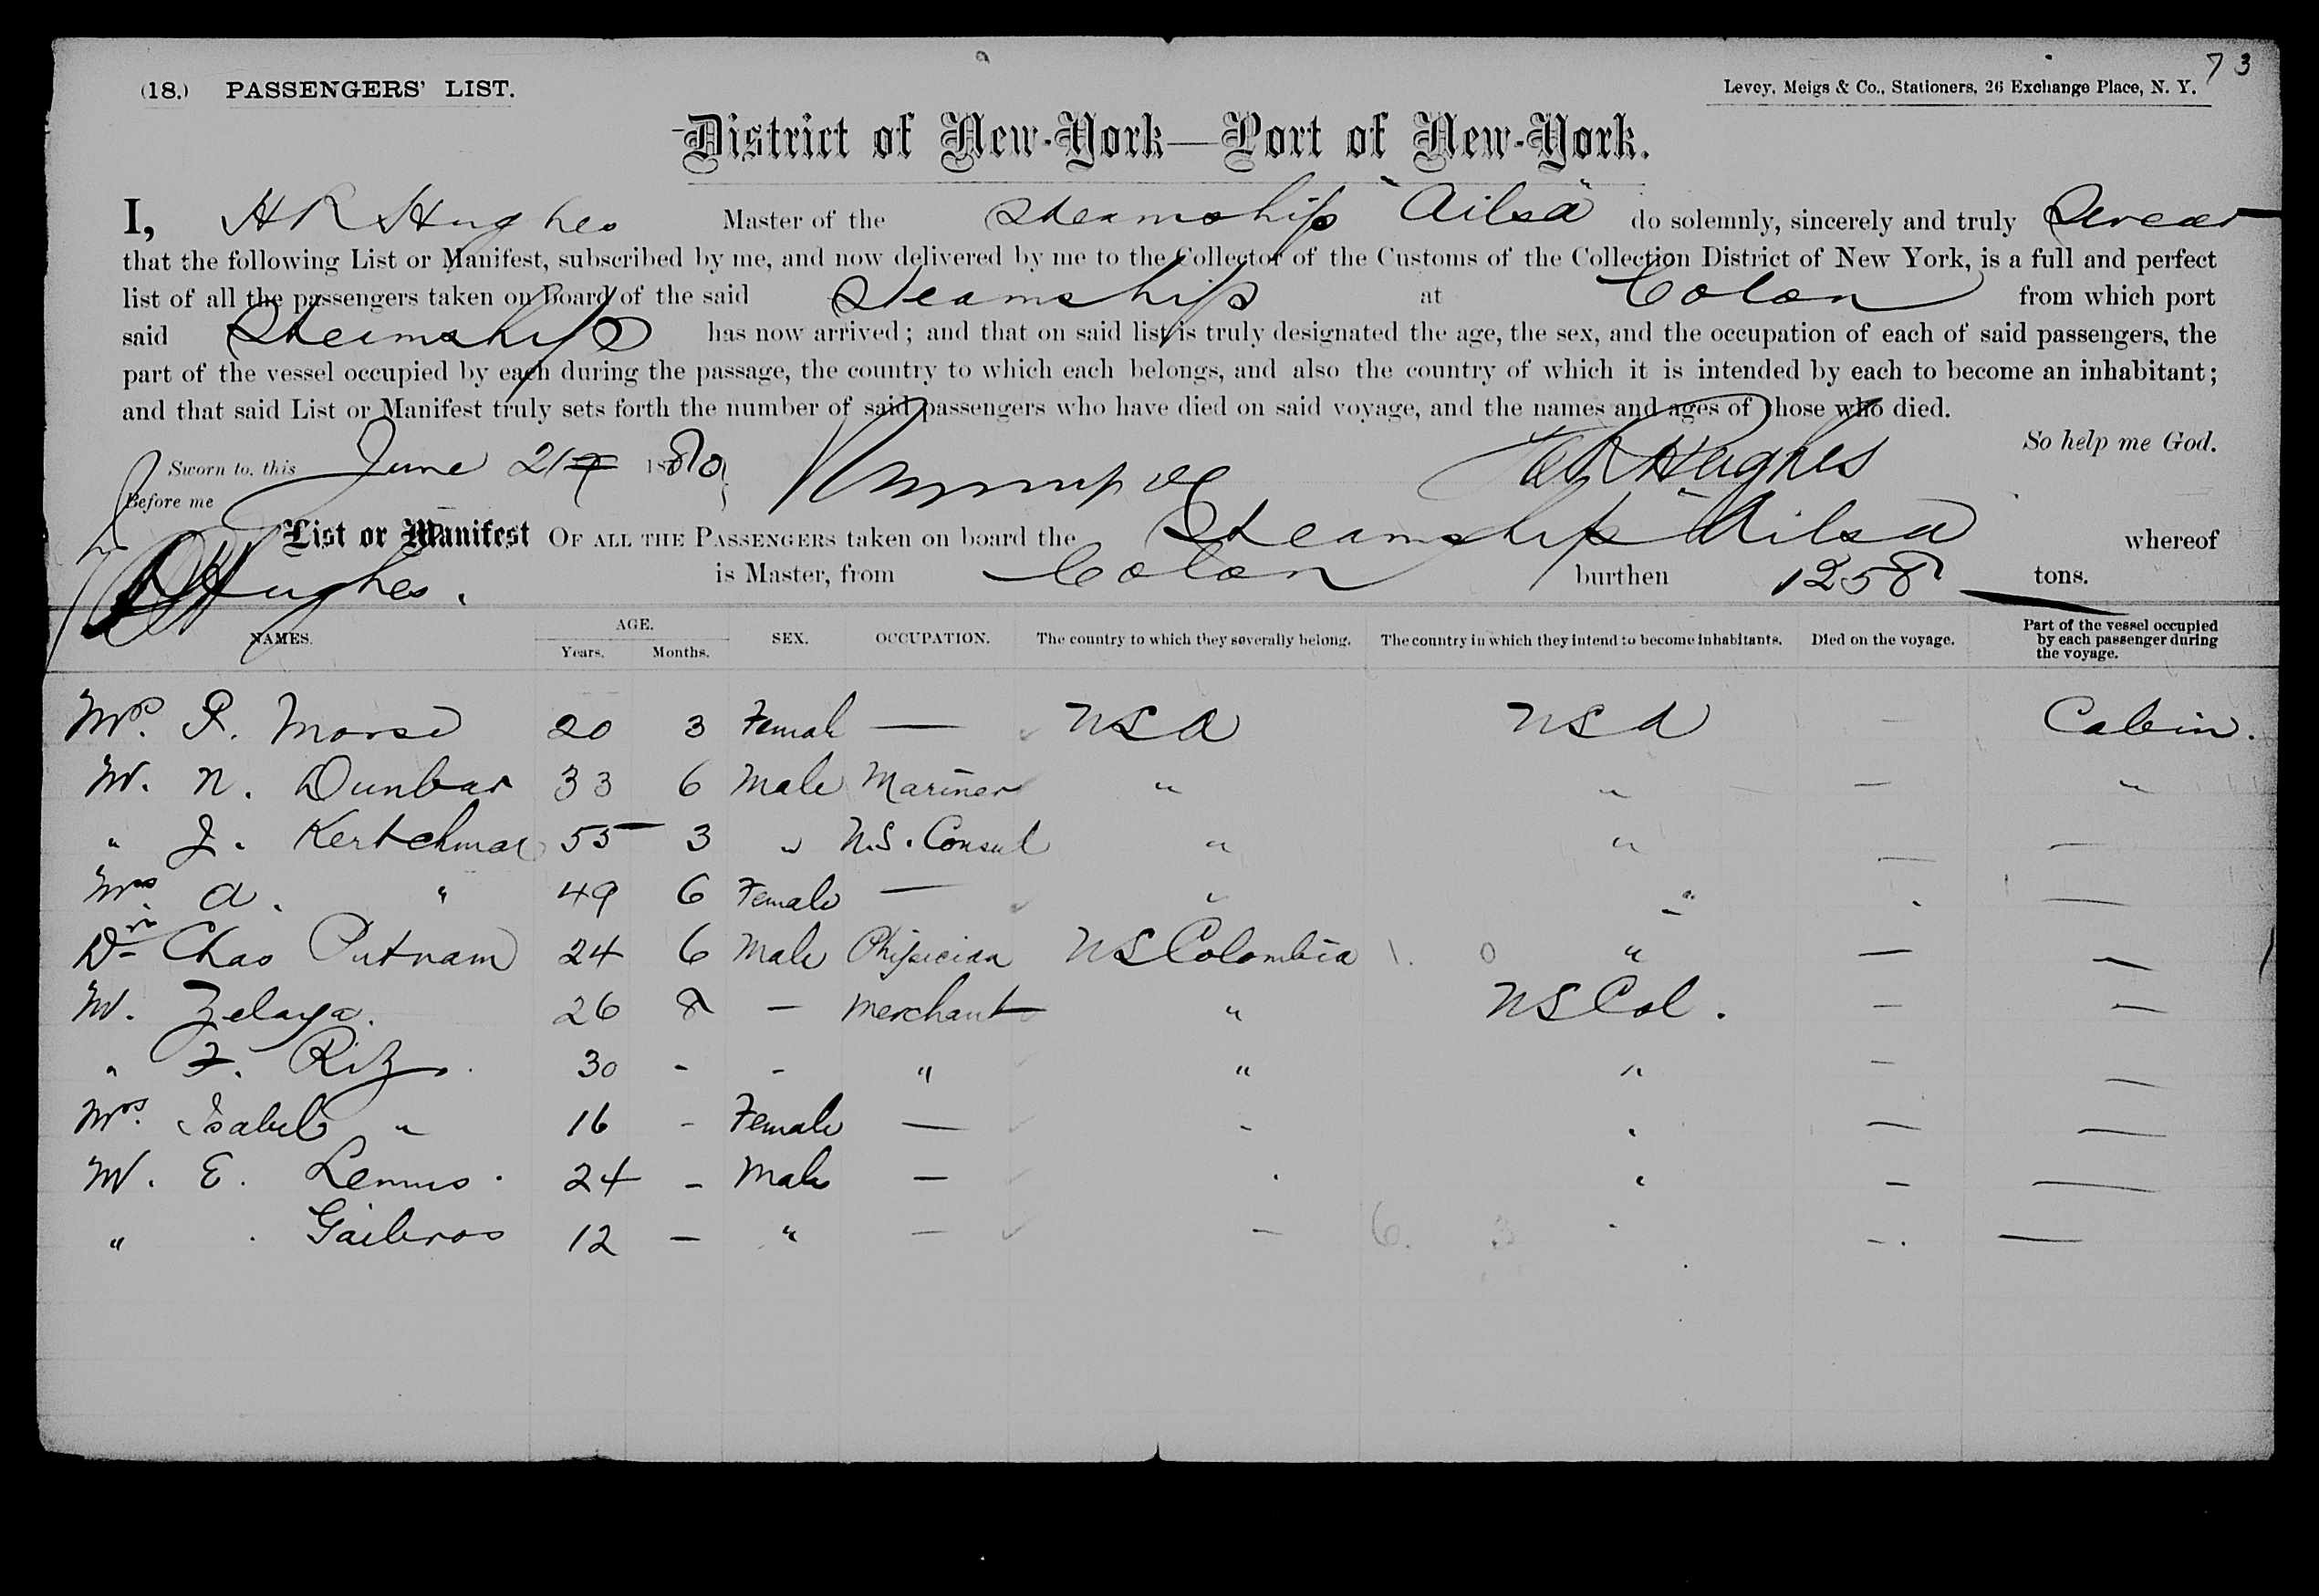 73
(18.) PASSENGERS' LIST. Levey, Meigs & Co., Stationers, 26 Exchange Place, N. Y.
District of New-York—Port of New-York.
I, H R Hughes Master of the Steamship "Ailsa" do solemnly, sincerely and truly Swear
that the following List or Manifest, subscribed by me, and now delivered by me to the Collector of the Customs of the Collection District of New York, is a full and perfect
list of all the passengers taken on board of the said Steamship at Colon from which port
said Steamship has now arrived; and that on said list is truly designated the age, the sex, and the occupation of each of said passengers, the
part of the vessel occupied by each during the passage, the country to which each belongs, and also the country of which it is intended by each to become an inhabitant;
and that said List or Manifest truly sets forth the number of said passengers who have died on said voyage, and the names and ages of those who died.
So help me God.
Sworn to, this June 21 1880 Hughes
Before me
List or Manifest OF ALL THE PASSENGERS taken on board the Steamship Ailsa whereof
Hughes. is Master, from Colon burthen 1258 tons.
NAMES. AGE. Years. Months. SEX. OCCUPATION. The country to which they severally belong. The country in which they intend to become inhabitants. Died on the voyage. Part of the vessel occupied by each passenger during the voyage.
Mrs. P. Morse 20 3 Female — USA USA — Cabin.
Mr. N. Dunbar 33 6 Male Mariner " " — "
" J. Kertchmar 55 3 " U.S. Consul " " — —
Mrs A. " 49 6 Female — " " —
Dr Chas Putnam 24 6 Male Phisician US Colombia 1. 0 " — —
Mr. Zelaya. 26 8 — Merchant " US Col. — —
" F. Riz 30 - - " " " — —
Mrs. Isabel " 16 - Female — " " — —
Mr. E. Lemus. 24 - Male — " " — —
" Gaibros 12 — " — — 6. 3 " — —